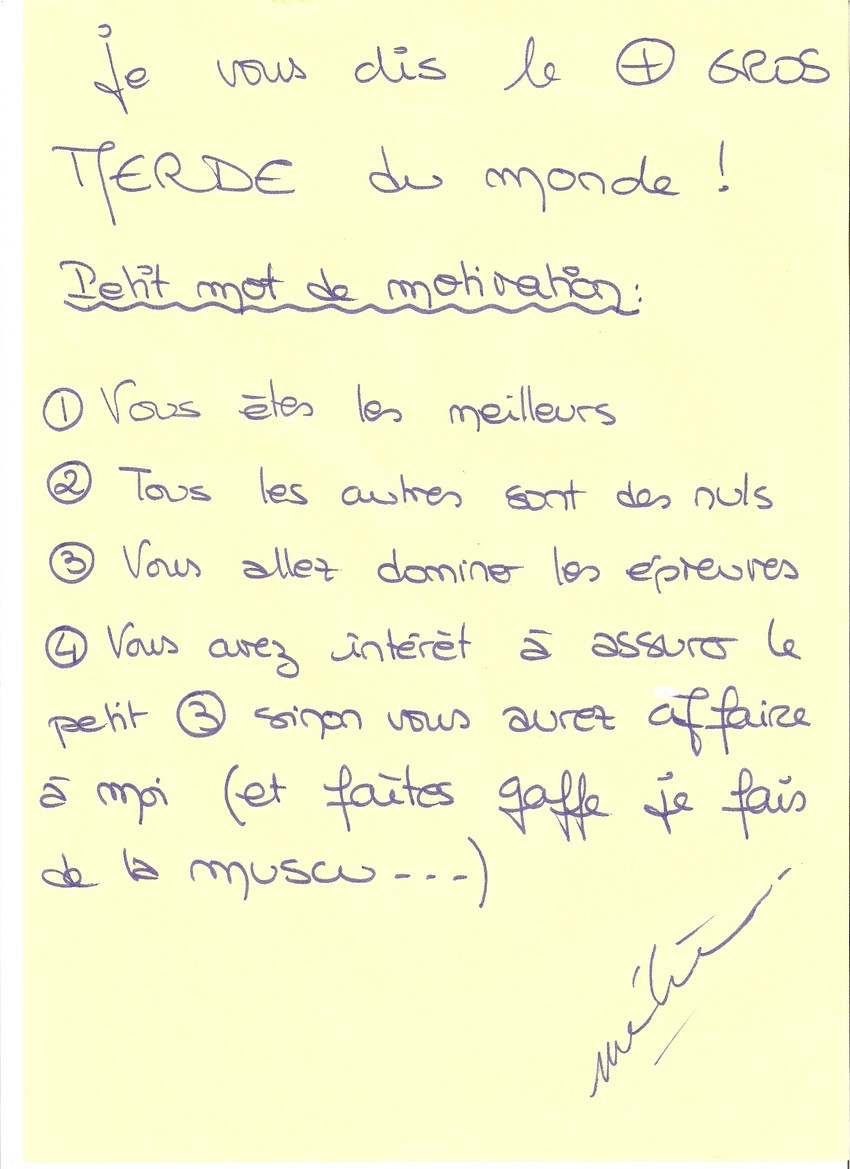 je vous dis le ⊕ GROS
MERDE du monde !
Petit mot de motivation :
① Vous êtes les meilleurs
② Tous les autres sont des nuls
③ Vous allez dominer les épreuves
④ Vous avez intérêt à assurer le
petit ③ sinon vous aurez affaire
à moi (et faîtes gaffe je fais
de la muscu ---)